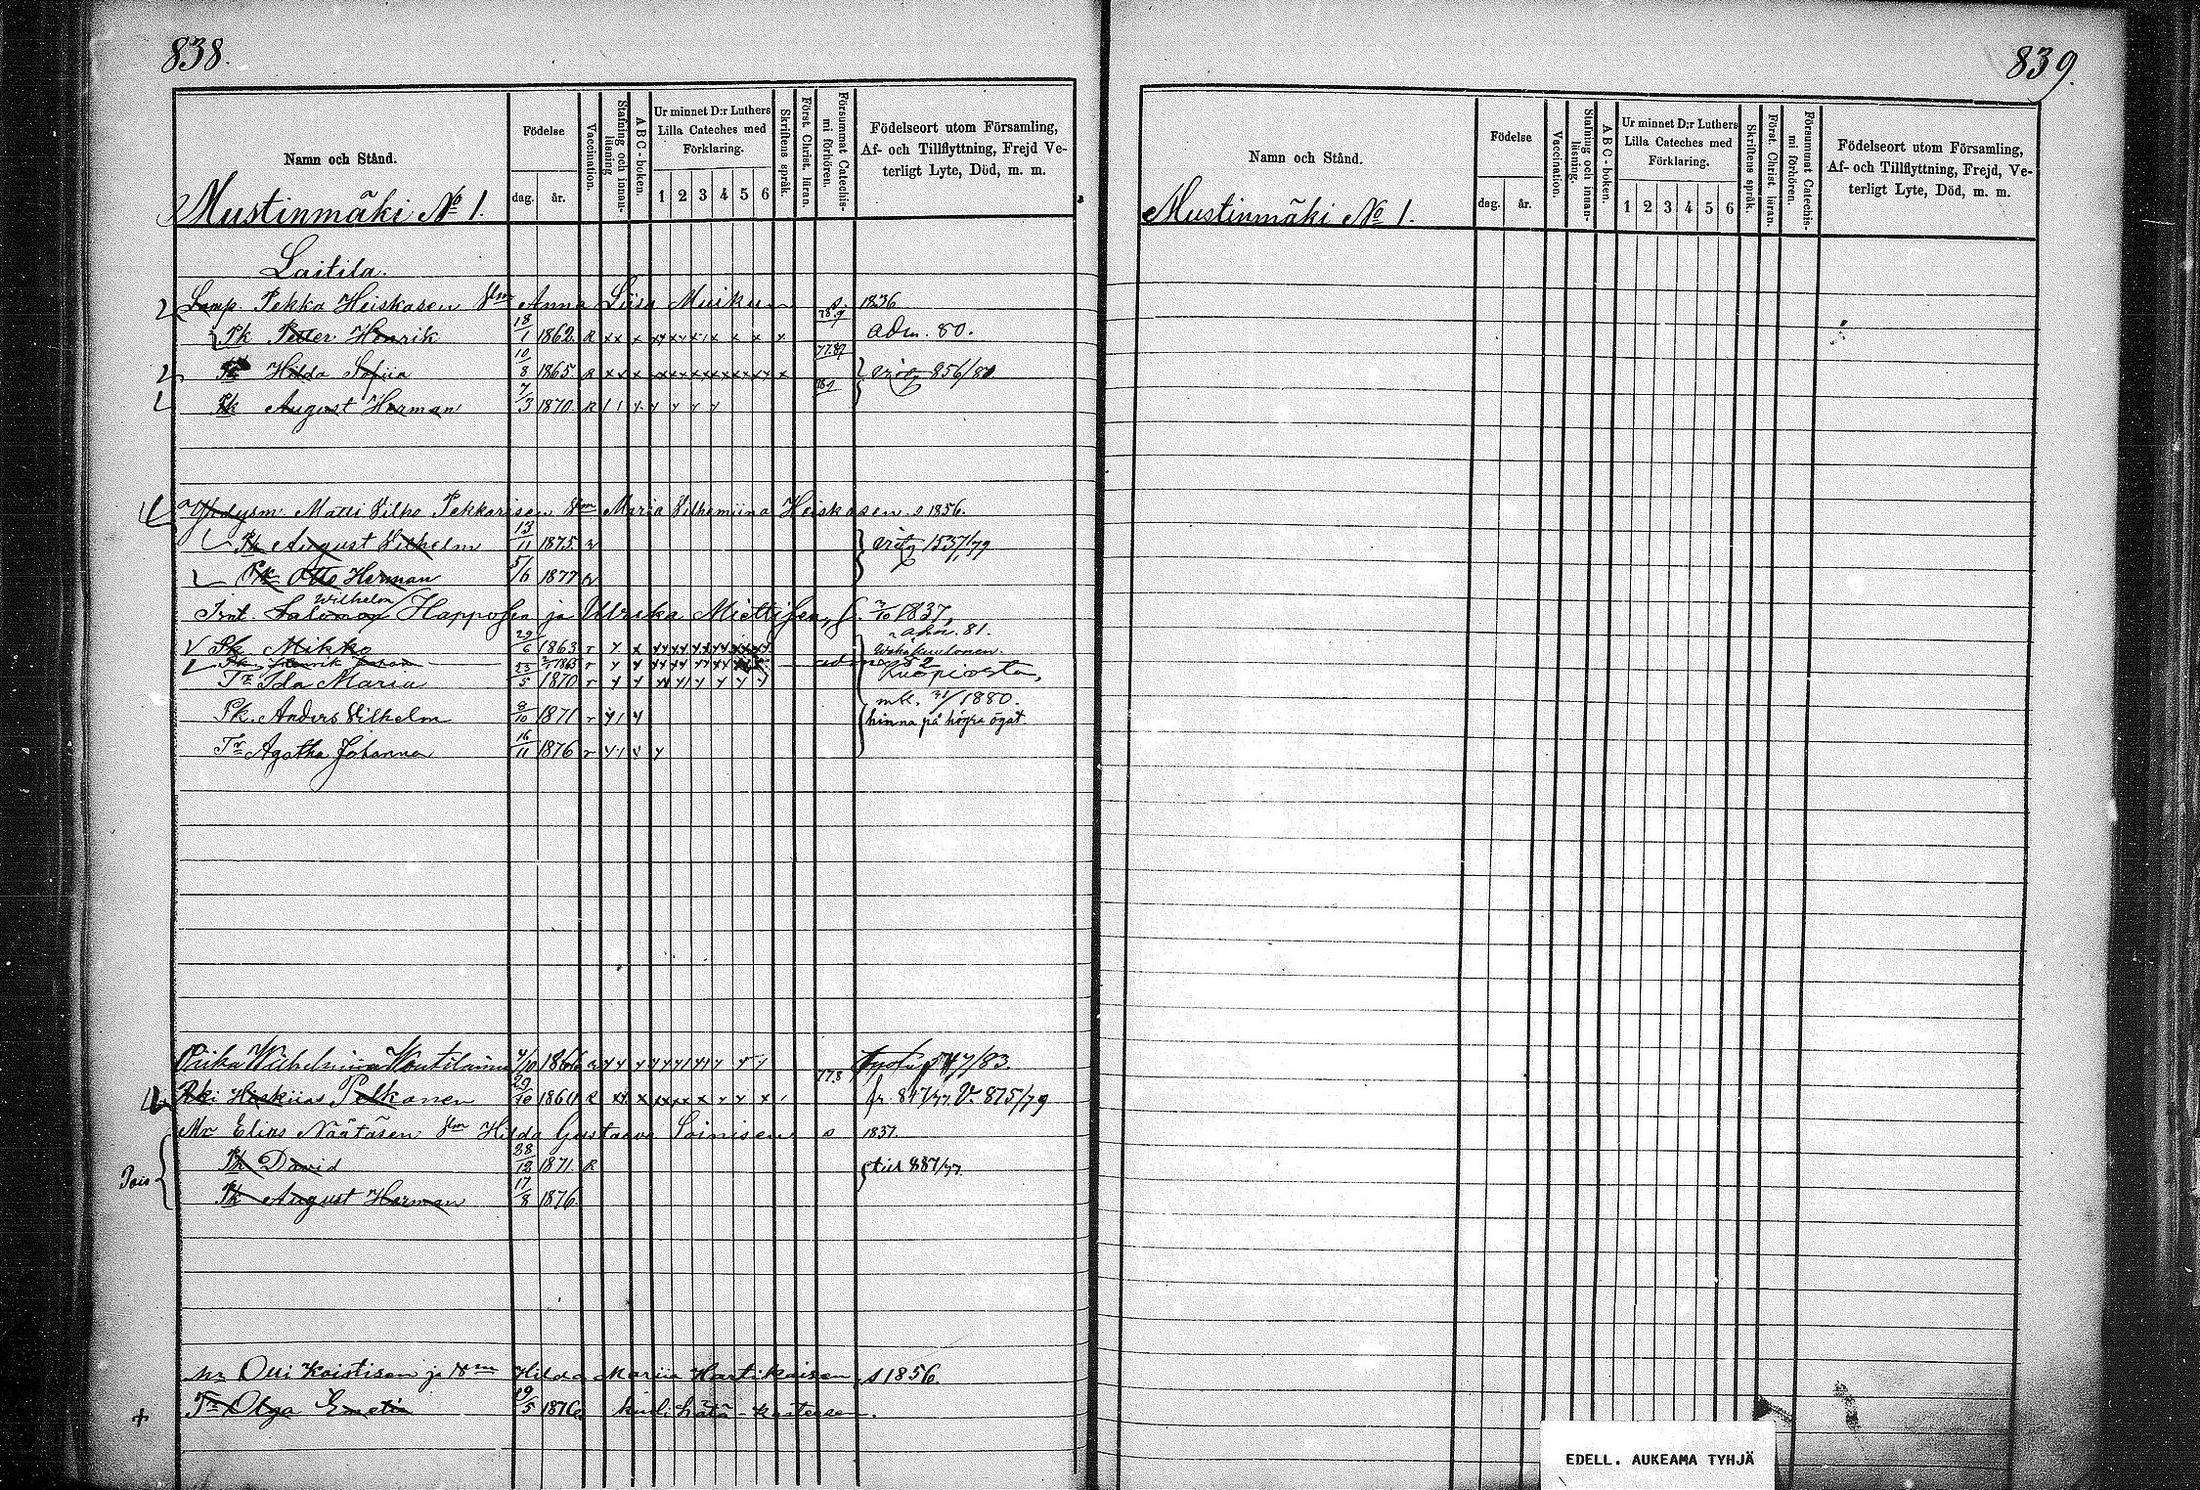 838.
Namn och Stånd.
Födelse
dag. år.
Vaccination.
Stafning och innanläsning
ABC-boken.
Ur minnet D:r Luthers Lilla Cateches med Förklaring.
1 2 3 4 5 6
Skriftens språk.
Först. Christ. läran.
Försummat Catechismi förhören.
Födelseort utom Församling,
Af- och Tillflyttning, Frejd Ve-
terligt Lyte, Död, m. m.
Mustinmäki No 1.
Laitila.
Lamp. Pekka Heiskasen Vm Anna Liisa Muikun s. 1836
Pk Petter Henrik 18/1 1862 R adm. 80.
Tr Hilda Sofiia 10/8 1865 R 856/81
Pk August Herman 7/3 1870 R
Matti Vilho Pekkarisen Vm Maria Vilhemiina Heiskasen s 1856.
Pk August Vilhelm 13/11 1875 1537/79
Pk Otto Herman 5/6 1877
Wilhelm
Irnt. Salomon Happosen ja Ulriika Miettisen, 1837,
adm. 81.
Pk. Mikko 29/6 1863 r
Pk Henrik Johan 1865 r adm 82
Tr Ida Maria 23/5 1870 r Kuopiosta,
mk. 1880.
Pk. Anders Vilhelm 9/10 1871 r hinna på högra ögat
Tr Agatha Johanna 16/11 1876 r
Wilhelmiina Voutilainen 4/10 1866 547/83.
77.8
Pki Heskiias Pelkonen 29/10 1861 R fr. 847/77. V. 875/79
Mr Elias Näätäsen Vm Hilda Gustaava Soinisen s 1837.
Pois
Pk David 28/12 1871. R 887/77.
Pk August Herman 17/8 1876.
Mr Olli Koistisen ja Vm Hilda Mariia Hartikaisen, s 1856.
+ Tr Olga Emelia 19/5 1876 kuoli hätä-kasteesen.
839.
Namn och Stånd.
Födelse
dag. år.
Vaccination.
Stafning och innanläsning.
ABC-boken.
Ur minnet D:r Luthers Lilla Cateches med Förklaring.
1 2 3 4 5 6
Skriftens språk.
Först. Christ. läran.
Försummat Catechismi förhören.
Födelseort utom Församling,
Af- och Tillflyttning, Frejd, Ve-
terligt Lyte, Död, m. m.
Mustinmäki No 1.
EDELL. AUKEAMA TYHJÄ